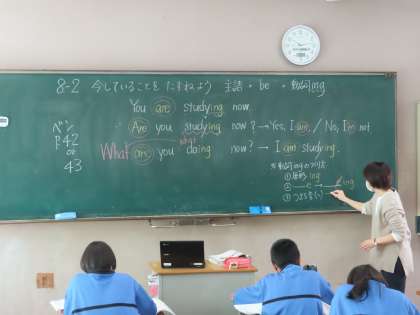 8-2 今していることをたずねよう 主語・be・動詞ing
You are studying now.
Are you studying now? → Yes, I am. / No, I'm not
What are you doing now? → I am studying.
what
ベンド
42
or
43
※動詞ingのつけ方
① 原形 ing
② e → ing
③